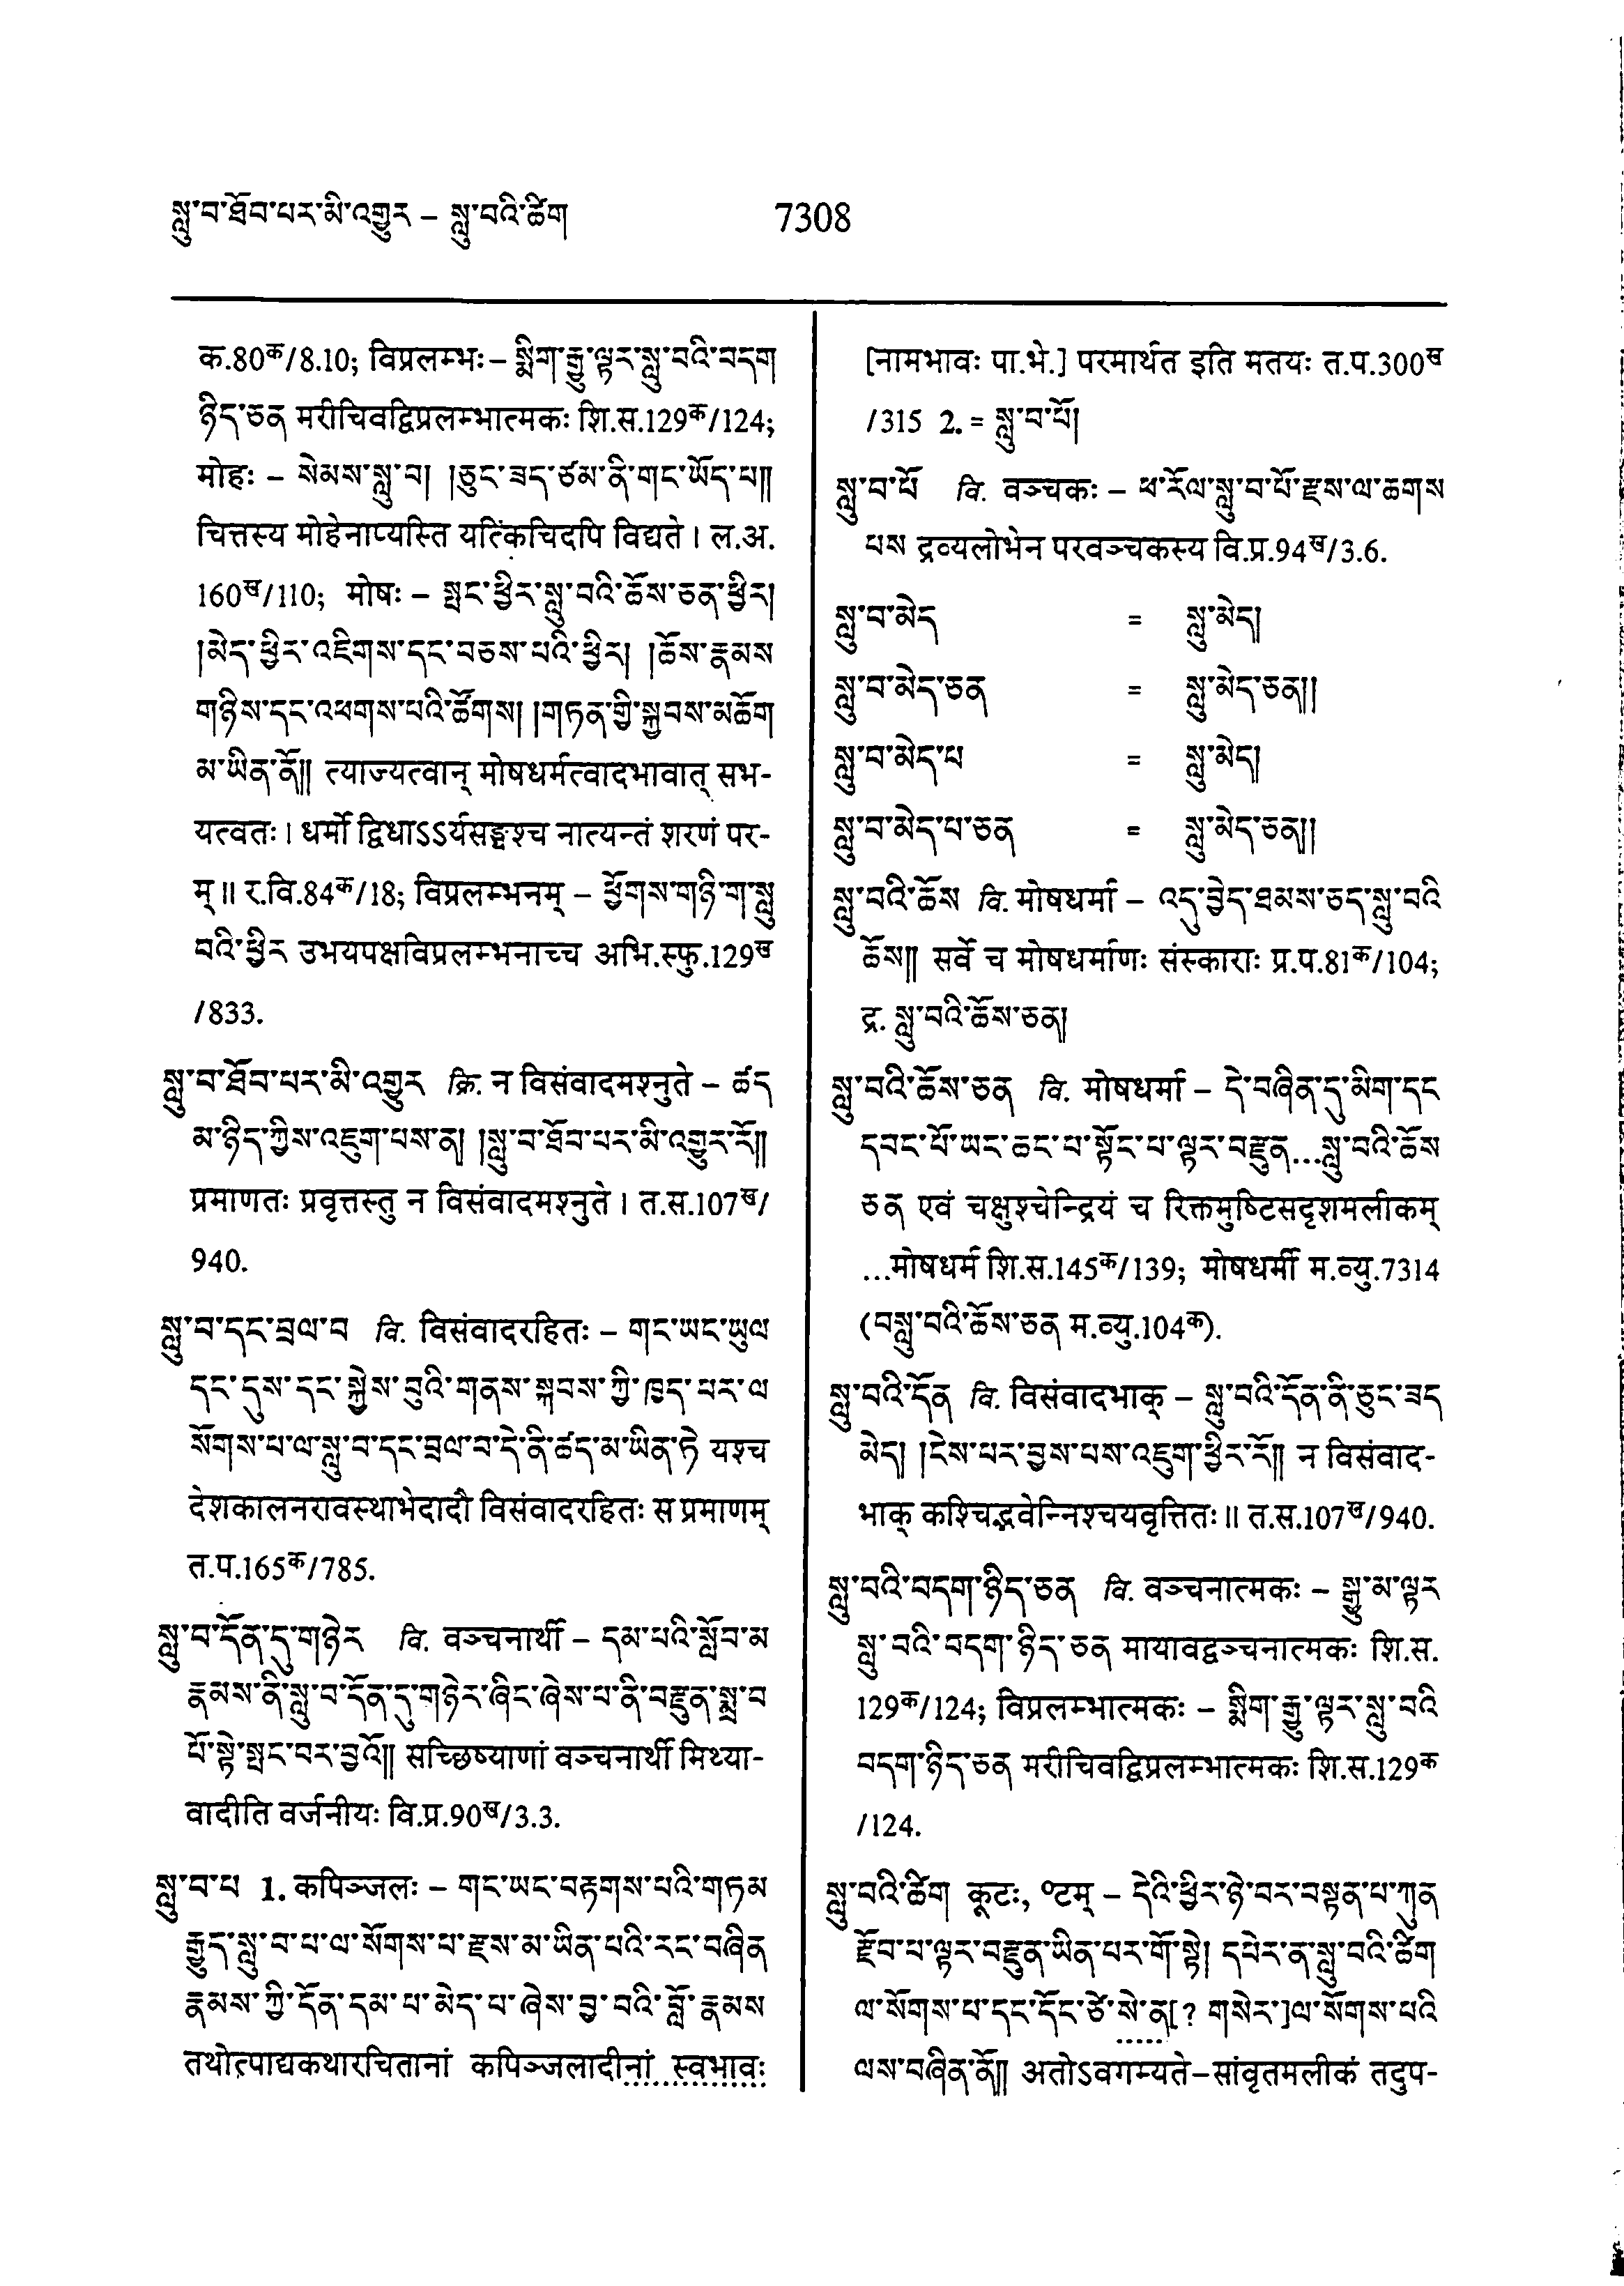 སླུ་བ་ཐོབ་པར་མི་འགྱུར – སླུ་བའི་ཚིག
7308
क.80क/8.10; विप्रलम्भः– སྨིག་རྒྱུ་ལྟར་སླུ་བའི་བདག
ཉིད་ཅན मरीचिवद्विप्रलम्भात्मकः शि.स.129क/124;
मोहः – སེམས་སླུ་བ། །ཅུང་ཟད་ཙམ་ནི་གང་ཡོད་པ།།
चित्तस्य मोहेनाप्यस्ति यत्किंचिदपि विद्यते । ल.अ.
160ख/110; मोषः – སྤང་ཕྱིར་སླུ་བའི་ཆོས་ཅན་ཕྱིར།
།མེད་ཕྱིར་འཇིགས་དང་བཅས་པའི་ཕྱིར། །ཆོས་རྣམས
གཉིས་དང་འཕགས་པའི་ཚོགས། །གཏན་གྱི་སྐྱབས་མཆོག
མ་ཡིན་ནོ།། त्याज्यत्वान् मोषधर्मत्वादभावात् सभ-
यत्वतः । धर्मो द्विधाऽऽर्यसङ्घश्च नात्यन्तं शरणं पर-
म् ॥ र.वि.84क/18; विप्रलम्भनम् – ཕྱོགས་གཉི་ག་སླུ
བའི་ཕྱིར उभयपक्षविप्रलम्भनाच्च अभि.स्फु.129ख
/833.
སླུ་བ་ཐོབ་པར་མི་འགྱུར क्रि. न विसंवादमश्नुते – ཚད
མ་ཉིད་ཀྱིས་འཇུག་པས་ན། །སླུ་བ་ཐོབ་པར་མི་འགྱུར་རོ།།
प्रमाणतः प्रवृत्तस्तु न विसंवादमश्नुते । त.स.107ख/
940.
སླུ་བ་དང་བྲལ་བ वि. विसंवादरहितः – གང་ཡང་ཡུལ
དང་དུས་དང་སྐྱེས་བུའི་གནས་སྐབས་ཀྱི་ཁྱད་པར་ལ
སོགས་པ་ལ་སླུ་བ་དང་བྲལ་བ་དེ་ནི་ཚད་མ་ཡིན་ཏེ यश्च
देशकालनरावस्थाभेदादौ विसंवादरहितः स प्रमाणम्
त.प.165क/785.
སླུ་བ་དོན་དུ་གཉེར वि. वञ्चनार्थी – དམ་པའི་སློབ་མ
རྣམས་ནི་སླུ་བ་དོན་དུ་གཉེར་ཞིང་ཞེས་པ་ནི་བརྫུན་སྨྲ་བ
པོ་སྟེ་སྤང་བར་བྱའོ།། सच्छिष्याणां वञ्चनार्थी मिथ्या-
वादीति वर्जनीयः वि.प्र.90ख/3.3.
སླུ་བ་པ 1. कपिञ्जलः – གང་ཡང་བརྟགས་པའི་གཏམ
རྒྱུད་སླུ་བ་པ་ལ་སོགས་པ་རྫས་མ་ཡིན་པའི་རང་བཞིན
རྣམས་ཀྱི་དོན་དམ་པ་མེད་པ་ཞེས་བྱ་བའི་བློ་རྣམས
तथोत्पाद्यकथारचितानां कपिञ्जलादीनां स्वभावः
[नामभावः पा.भे.] परमार्थत इति मतयः त.प.300ख
/315 2. = སླུ་བ་པོ།
སླུ་བ་པོ वि. वञ्चकः – ཕ་རོལ་སླུ་བ་པོ་རྫས་ལ་ཆགས
པས द्रव्यलोभेन परवञ्चकस्य वि.प्र.94ख/3.6.
སླུ་བ་མེད = སླུ་མེད།
སླུ་བ་མེད་ཅན = སླུ་མེད་ཅན།།
སླུ་བ་མེད་པ = སླུ་མེད།
སླུ་བ་མེད་པ་ཅན = སླུ་མེད་ཅན།།
སླུ་བའི་ཆོས वि. मोषधर्मा – འདུ་བྱེད་ཐམས་ཅད་སླུ་བའི
ཆོས།། सर्वे च मोषधर्माणः संस्काराः प्र.प.81क/104;
द्र. སླུ་བའི་ཆོས་ཅན།
སླུ་བའི་ཆོས་ཅན वि. मोषधर्मा – དེ་བཞིན་དུ་མིག་དང
དབང་པོ་ཡང་ཆང་པ་སྟོང་པ་ལྟར་བརྫུན...སླུ་བའི་ཆོས
ཅན एवं चक्षुश्चेन्द्रियं च रिक्तमुष्टिसदृशमलीकम्
...मोषधर्म शि.स.145क/139; मोषधर्मी म.व्यु.7314
(བསླུ་བའི་ཆོས་ཅན म.व्यु.104क).
སླུ་བའི་དོན वि. विसंवादभाक् – སླུ་བའི་དོན་ནི་ཅུང་ཟད
མེད། །ངེས་པར་བྱས་པས་འཇུག་ཕྱིར་རོ།། न विसंवाद-
भाक् कश्चिद्भवेन्निश्चयवृत्तितः ॥ त.स.107ख/940.
སླུ་བའི་བདག་ཉིད་ཅན वि. वञ्चनात्मकः – སྒྱུ་མ་ལྟར
སླུ་བའི་བདག་ཉིད་ཅན मायावद्वञ्चनात्मकः शि.स.
129क/124; विप्रलम्भात्मकः – སྨིག་རྒྱུ་ལྟར་སླུ་བའི
བདག་ཉིད་ཅན मरीचिवद्विप्रलम्भात्मकः शि.स.129क
/124.
སླུ་བའི་ཚིག कूटः, ०टम् – དེའི་ཕྱིར་ཉེ་བར་བསྟན་པ་ཀུན
རྫོབ་པ་ལྟར་བརྫུན་ཡིན་པར་གོ་སྟེ། དཔེར་ན་སླུ་བའི་ཚིག
ལ་སོགས་པ་དང་དོང་ཙེ་སེ་ན[? གསེར་]ལ་སོགས་པའི
ལས་བཞིན་ནོ།། अतोऽवगम्यते–सांवृतमलीकं तदुप-